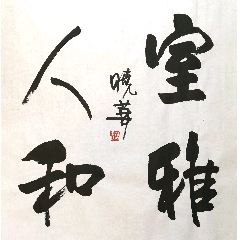 室雅
人和
曉華